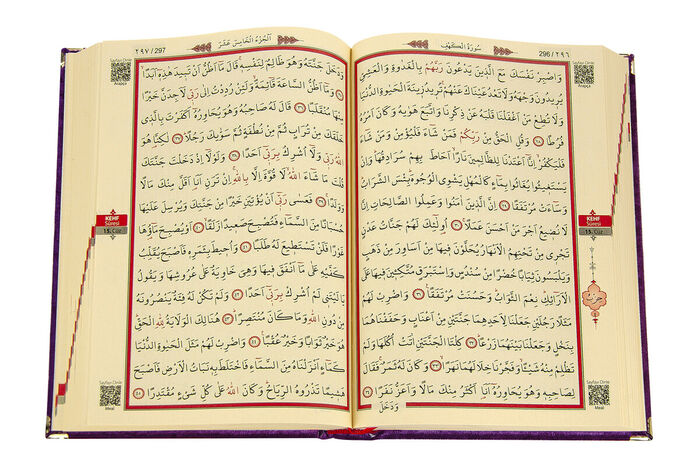 سُورَةُ الْكَهْفِ
296 / ٢٩٦
وَاصْبِرْ نَفْسَكَ مَعَ الَّذِينَ يَدْعُونَ رَبَّهُمْ بِالْغَدٰوةِ وَالْعَشِيِّ
يُرِيدُونَ وَجْهَهُ وَلَا تَعْدُ عَيْنَاكَ عَنْهُمْ تُرِيدُ زِينَةَ الْحَيٰوةِ الدُّنْيَا
وَلَا تُطِعْ مَنْ اَغْفَلْنَا قَلْبَهُ عَنْ ذِكْرِنَا وَاتَّبَعَ هَوٰيهُ وَكَانَ اَمْرُهُ
فُرُطًا ﴿٢٨﴾ وَقُلِ الْحَقُّ مِنْ رَبِّكُمْ فَمَنْ شَاءَ فَلْيُؤْمِنْ وَمَنْ شَاءَ
فَلْيَكْفُرْ اِنَّا اَعْتَدْنَا لِلظَّالِمِينَ نَارًا اَحَاطَ بِهِمْ سُرَادِقُهَا وَاِنْ
يَسْتَغِيثُوا يُغَاثُوا بِمَاءٍ كَالْمُهْلِ يَشْوِي الْوُجُوهَ بِئْسَ الشَّرَابُ
وَسَاءَتْ مُرْتَفَقًا ﴿٢٩﴾ اِنَّ الَّذِينَ اٰمَنُوا وَعَمِلُوا الصَّالِحَاتِ اِنَّا
لَا نُضِيعُ اَجْرَ مَنْ اَحْسَنَ عَمَلًا ﴿٣٠﴾ اُولٰئِكَ لَهُمْ جَنَّاتُ عَدْنٍ
تَجْرِي مِنْ تَحْتِهِمُ الْاَنْهَارُ يُحَلَّوْنَ فِيهَا مِنْ اَسَاوِرَ مِنْ ذَهَبٍ
وَيَلْبَسُونَ ثِيَابًا خُضْرًا مِنْ سُنْدُسٍ وَاِسْتَبْرَقٍ مُتَّكِئِينَ فِيهَا عَلَى
الْاَرَائِكِ نِعْمَ الثَّوَابُ وَحَسُنَتْ مُرْتَفَقًا ﴿٣١﴾ وَاضْرِبْ لَهُمْ
مَثَلًا رَجُلَيْنِ جَعَلْنَا لِاَحَدِهِمَا جَنَّتَيْنِ مِنْ اَعْنَابٍ وَحَفَفْنَاهُمَا
بِنَخْلٍ وَجَعَلْنَا بَيْنَهُمَا زَرْعًا ﴿٣٢﴾ كِلْتَا الْجَنَّتَيْنِ اٰتَتْ اُكُلَهَا وَلَمْ
تَظْلِمْ مِنْهُ شَيْئًا وَفَجَّرْنَا خِلَالَهُمَا نَهَرًا ﴿٣٣﴾ وَكَانَ لَهُ ثَمَرٌ فَقَالَ
لِصَاحِبِهِ وَهُوَ يُحَاوِرُهُ اَنَا اَكْثَرُ مِنْكَ مَالًا وَاَعَزُّ نَفَرًا ﴿٣٤﴾
وَدَخَلَ
Sayfayı Dinle
Arapça
KEHF
Sûresi
15. Cüz
حزب
Sayfayı Dinle
Meal
٢٩٧ / 297
اَلْجُزْءُ الْخَامِسَ عَشَرَ
وَدَخَلَ جَنَّتَهُ وَهُوَ ظَالِمٌ لِنَفْسِهِ قَالَ مَا اَظُنُّ اَنْ تَبِيدَ هٰذِهِ اَبَدًا
﴿٣٥﴾ وَمَا اَظُنُّ السَّاعَةَ قَائِمَةً وَلَئِنْ رُدِدْتُ اِلٰى رَبِّي لَاَجِدَنَّ خَيْرًا
مِنْهَا مُنْقَلَبًا ﴿٣٦﴾ قَالَ لَهُ صَاحِبُهُ وَهُوَ يُحَاوِرُهُ اَكَفَرْتَ بِالَّذِي
خَلَقَكَ مِنْ تُرَابٍ ثُمَّ مِنْ نُطْفَةٍ ثُمَّ سَوّٰيكَ رَجُلًا ﴿٣٧﴾ لٰكِنَّا هُوَ
اللّٰهُ رَبِّي وَلَا اُشْرِكُ بِرَبِّي اَحَدًا ﴿٣٨﴾ وَلَوْلَا اِذْ دَخَلْتَ جَنَّتَكَ
قُلْتَ مَا شَاءَ اللّٰهُ لَا قُوَّةَ اِلَّا بِاللّٰهِ اِنْ تَرَنِ اَنَا اَقَلَّ مِنْكَ مَالًا
وَوَلَدًا ﴿٣٩﴾ فَعَسٰى رَبِّي اَنْ يُؤْتِيَنِ خَيْرًا مِنْ جَنَّتِكَ وَيُرْسِلَ عَلَيْهَا
حُسْبَانًا مِنَ السَّمَاءِ فَتُصْبِحَ صَعِيدًا زَلَقًا ﴿٤٠﴾ اَوْ يُصْبِحَ مَاؤُهَا
غَوْرًا فَلَنْ تَسْتَطِيعَ لَهُ طَلَبًا ﴿٤١﴾ وَاُحِيطَ بِثَمَرِهِ فَاَصْبَحَ يُقَلِّبُ
كَفَّيْهِ عَلٰى مَا اَنْفَقَ فِيهَا وَهِيَ خَاوِيَةٌ عَلٰى عُرُوشِهَا وَيَقُولُ
يَا لَيْتَنِي لَمْ اُشْرِكْ بِرَبِّي اَحَدًا ﴿٤٢﴾ وَلَمْ تَكُنْ لَهُ فِئَةٌ يَنْصُرُونَهُ
مِنْ دُونِ اللّٰهِ وَمَا كَانَ مُنْتَصِرًا ﴿٤٣﴾ هُنَالِكَ الْوَلَايَةُ لِلّٰهِ الْحَقِّ
هُوَ خَيْرٌ ثَوَابًا وَخَيْرٌ عُقْبًا ﴿٤٤﴾ وَاضْرِبْ لَهُمْ مَثَلَ الْحَيٰوةِ الدُّنْيَا
كَمَاءٍ اَنْزَلْنَاهُ مِنَ السَّمَاءِ فَاخْتَلَطَ بِهِ نَبَاتُ الْاَرْضِ فَاَصْبَحَ
هَشِيمًا تَذْرُوهُ الرِّيَاحُ وَكَانَ اللّٰهُ عَلٰى كُلِّ شَيْءٍ مُقْتَدِرًا ﴿٤٥﴾
Sayfayı Dinle
Arapça
KEHF
Sûresi
15. Cüz
Sayfayı Dinle
Meal